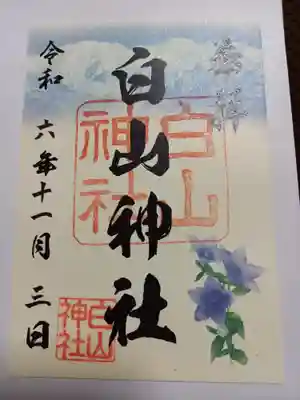 奉拝
白山神社
令和六年十一月三日
白山
神社
白山
神社